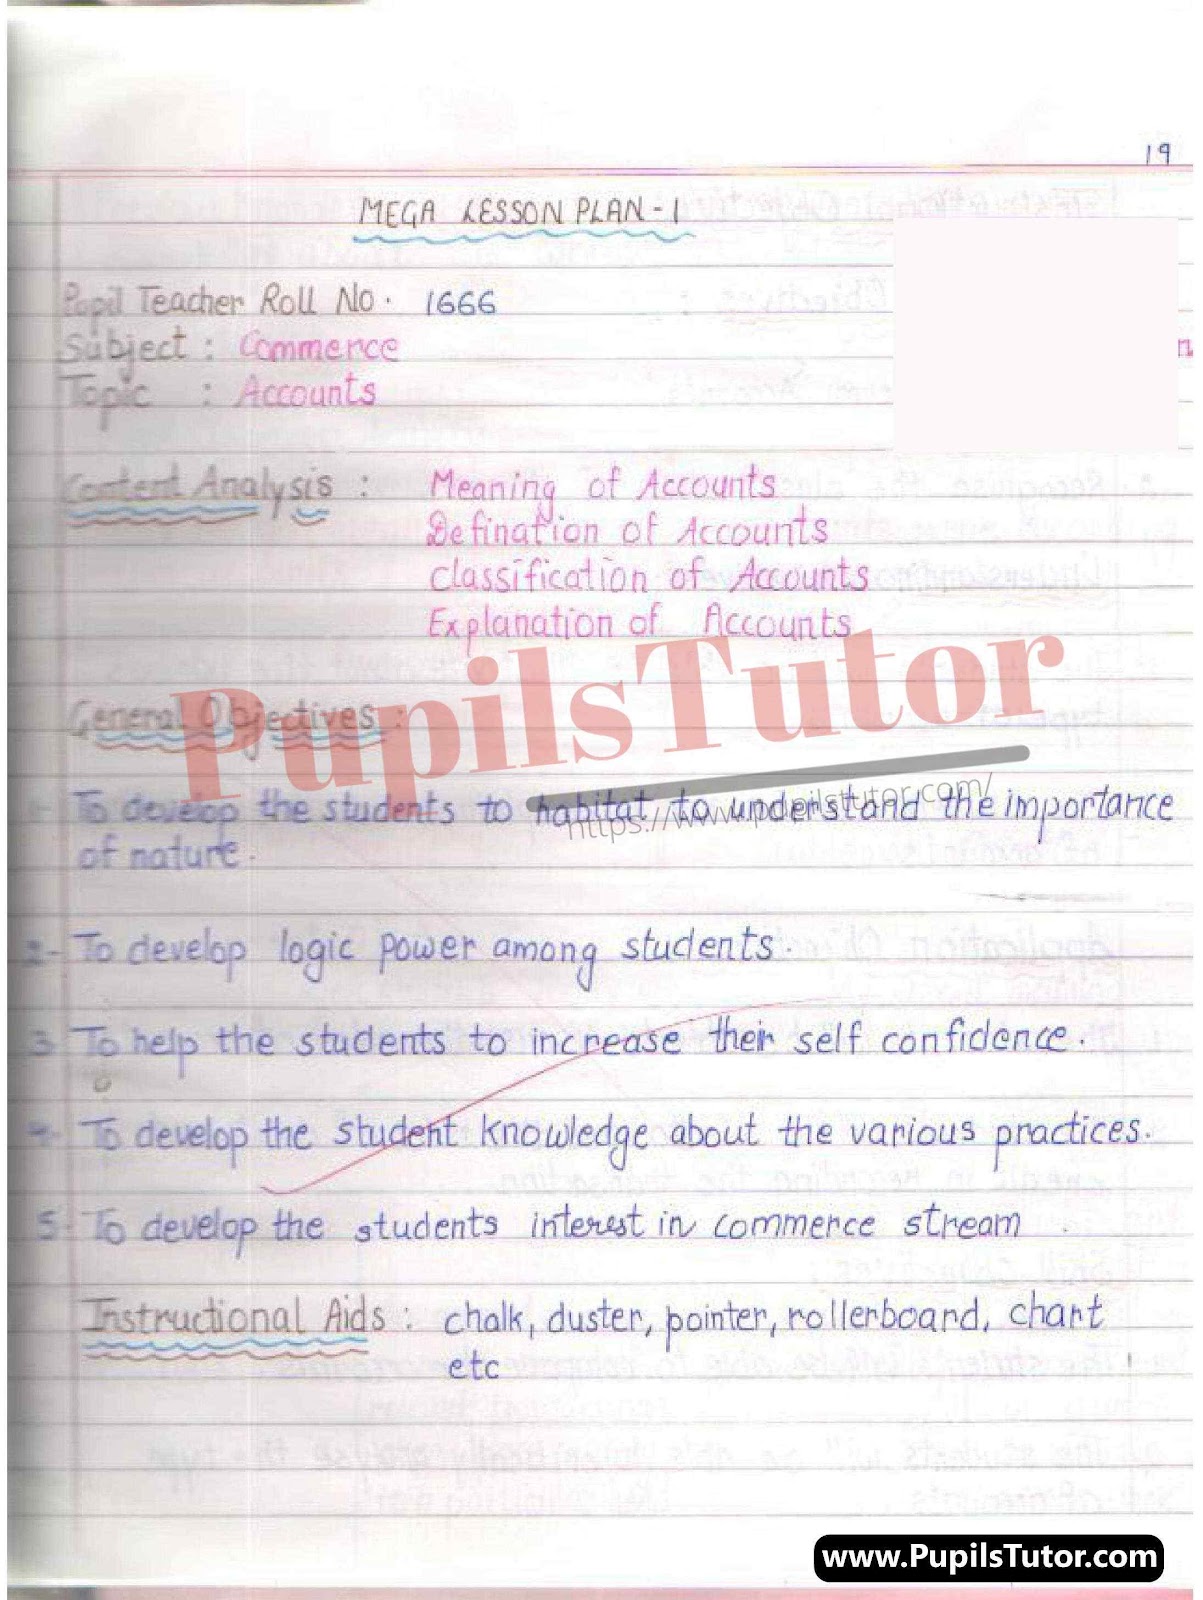 19
MEGA LESSON PLAN - 1
Pupil Teacher Roll No. 1666
Subject : Commerce
Topic : Accounts
Content Analysis : Meaning of Accounts
Defination of Accounts
Classification of Accounts
Explanation of Accounts
PupilsTutor
https://www.pupilstutor.com/
General Objectives :
1- To develop the students to habitat to understand the importance
of nature.
2- To develop logic power among students.
3 To help the students to increase their self confidence.
4- To develop the student knowledge about the various practices.
5- To develop the students interest in commerce stream .
Instructional Aids : chalk, duster, pointer, rollerboard, chart
etc
www.PupilsTutor.com